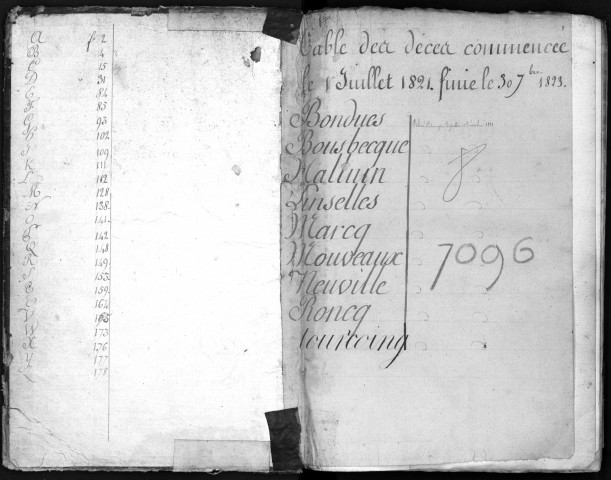 A f. 2
B 4
C 15
D 31
E 84
F 85
G 93
H 102
J 109
K 111
L 112
M 128
N 138
O 141
P 142
Q 148
R 149
S 153
T 159
V 164
W 173
X 176
Y 177
Z 178
Table des décès commencée
le 1 Juillet 1821. finie le 30 7bre 1823.
Bondues
Bousbecque
Halluin
Linselles
Marcq
Mouveaux
Neuville
Roncq
tourcoing
7096